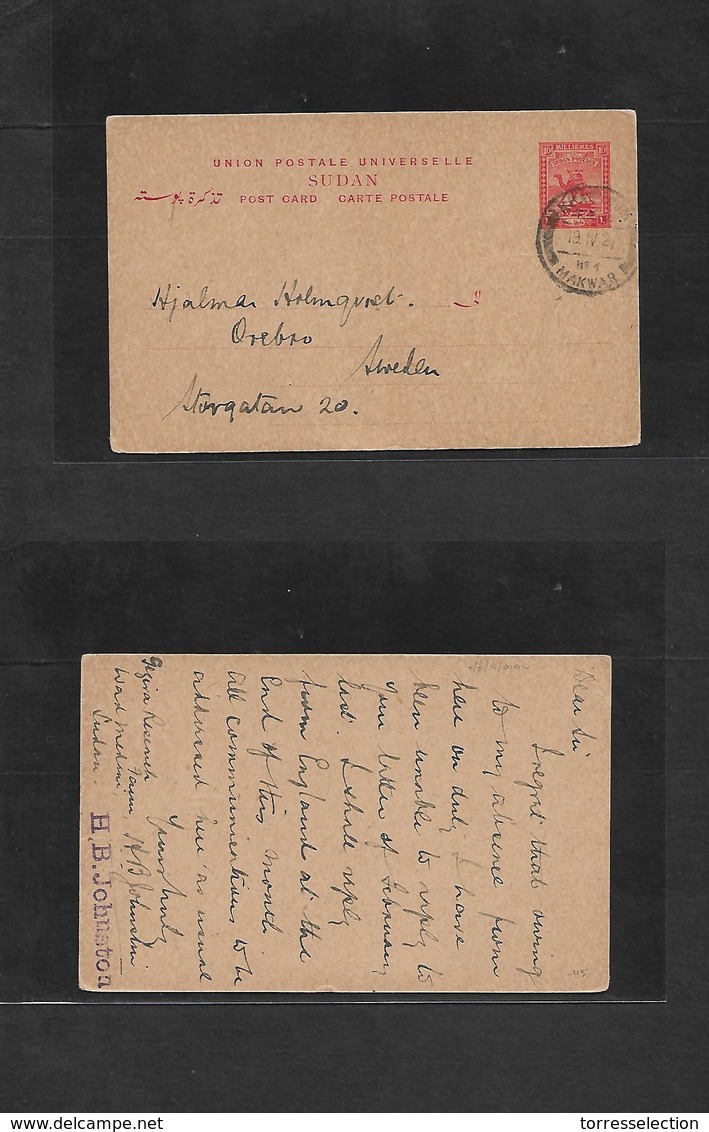 10 MILLIEMES 10
SUDAN POSTAGE
UNION POSTALE UNIVERSELLE
SUDAN
POST CARD CARTE POSTALE تذكرة پوسته
19 IV 2
Nº 1
MAKWAR
Hjalmar Holmqvist.
Orebro
Sweden
Storgatan 20.
Dear Sir
I regret that owing
to my absence from
here on duty I have
been unable to reply to
your letter of February
last. I shall reply
from England at the
end of this month
All communications to be
addressed here as usual
Yours truly
H B Johnston
Gezira Research
Farm,
Wad Medani,
Sudan
H. B. Johnston
.45
www.delcampe.net
torresselection